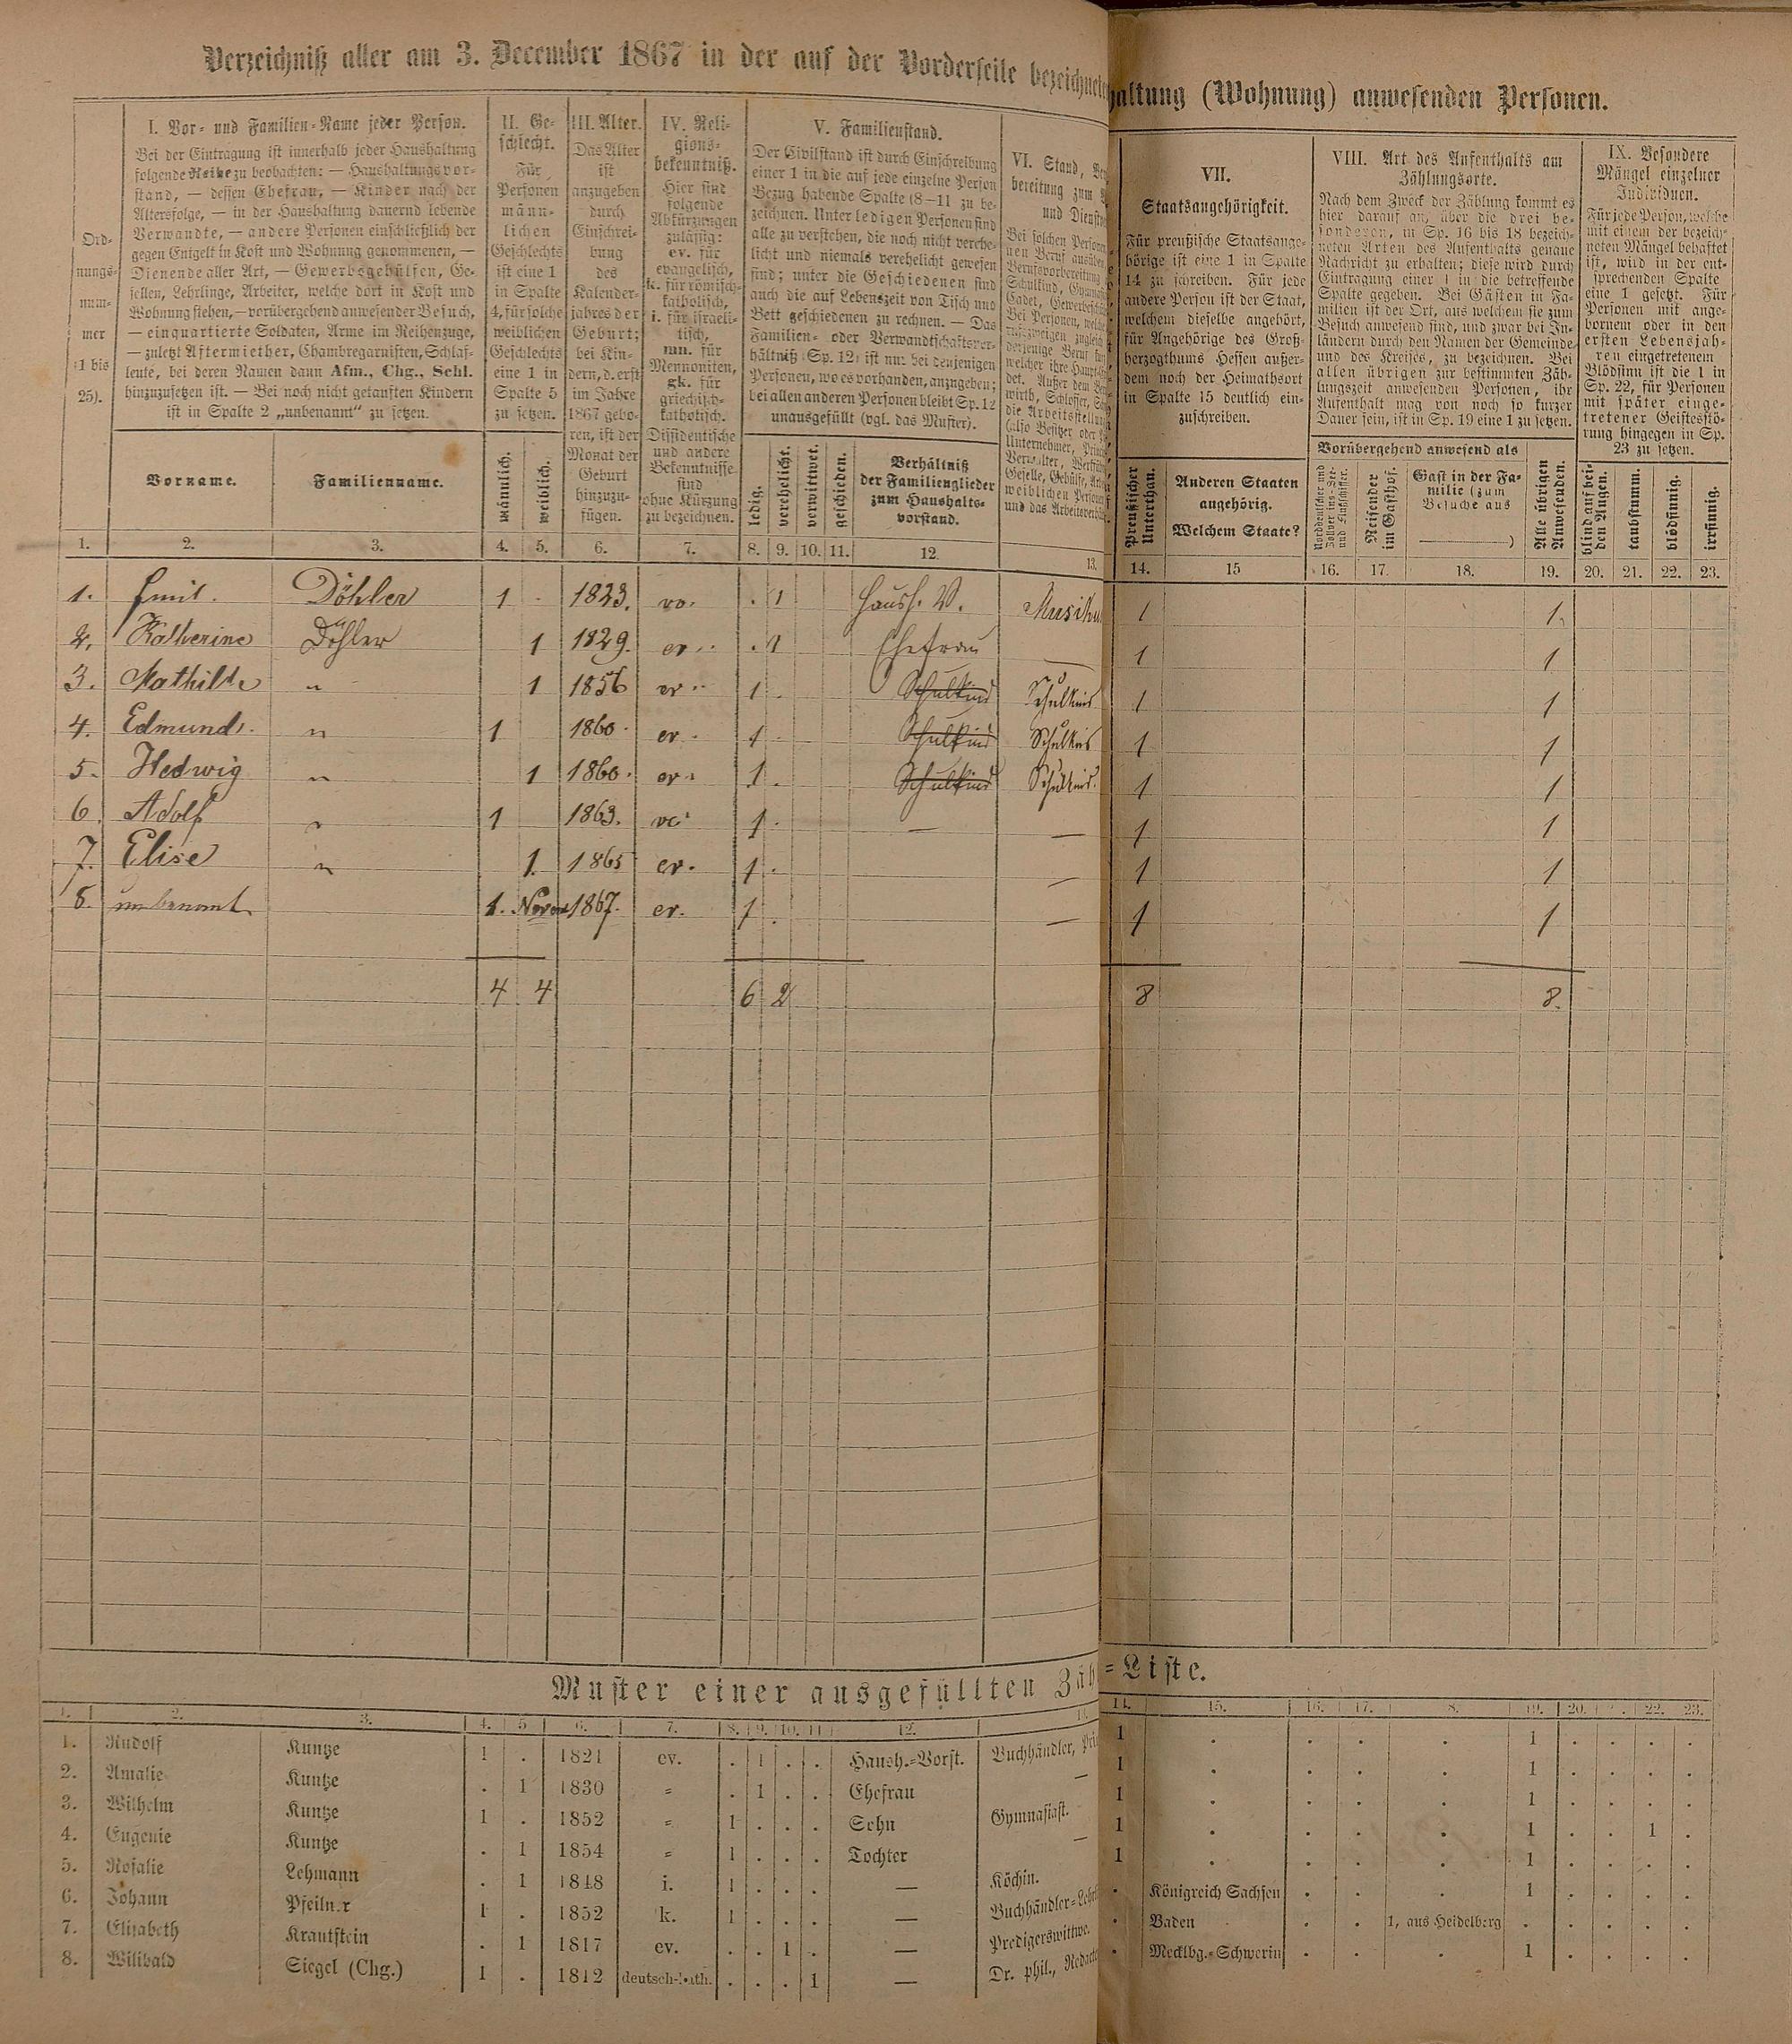 Verzeichniß aller am 3. December 1867 in der auf der Vorderseite bezeichneten
haltung (Wohnung) anwesenden Personen.
Ord-
nungs-
num-
mer
(1 bis
25).
I. Vor- und Familien-Name jeder Person.
Bei der Eintragung ist innerhalb jeder Haushaltung
folgende Reihe zu beobachten: — Haushaltungsvor-
stand, — dessen Ehefrau, — Kinder nach der
Altersfolge, — in der Haushaltung dauernd lebende
Verwandte, — andere Personen einschließlich der
gegen Entgelt in Kost und Wohnung genommenen, —
Dienende aller Art, — Gewerbsgehülfen, Ge-
sellen, Lehrlinge, Arbeiter, welche dort in Kost und
Wohnung stehen, — vorübergehend anwesender Besuch,
— einquartierte Soldaten, Arme im Reihenzuge,
— zuletzt Aftermiether, Chambregarnisten, Schlaf-
leute, bei deren Namen dann Afm., Chg., Schl.
hinzuzusetzen ist. — Bei noch nicht getauften Kindern
ist in Spalte 2 „unbenannt“ zu setzen.
Vorname.
Familienname.
II. Ge-
schlecht.
Für
Personen
männ-
lichen
Geschlechts
ist eine 1
in Spalte
4, für solche
weiblichen
Geschlechts
eine 1 in
Spalte 5
zu setzen.
männlich.
weiblich.
III. Alter.
Das Alter
ist
anzugeben
durch
Einschrei-
bung
des
Kalender-
jahres der
Geburt;
bei Kin-
dern, d. erst
im Jahre
1867 gebo-
ren, ist der
Monat der
Geburt
hinzuzu-
fügen.
IV. Reli-
gions-
bekenntniß.
Hier sind
folgende
Abkürzungen
zulässig:
ev. für
evangelisch,
k. für römisch-
katholisch,
i. für israeli-
tisch,
mn. für
Mennoniten,
gk. für
griechisch-
katholisch.
Dissidentische
und andere
Bekenntnisse
sind
ohne Kürzung
zu bezeichnen.
V. Familienstand.
Der Civilstand ist durch Einschreibung
einer 1 in die auf jede einzelne Person
Bezug habende Spalte (8—11 zu be-
zeichnen. Unter ledigen Personen sind
alle zu verstehen, die noch nicht verehe-
licht und niemals verehelicht gewesen
sind; unter die Geschiedenen sind
auch die auf Lebenszeit von Tisch und
Bett geschiedenen zu rechnen. — Das
Familien- oder Verwandtschaftsver-
hältniß (Sp. 12) ist nur bei denjenigen
Personen, wo es vorhanden, anzugeben;
bei allen anderen Personen bleibt Sp. 12
unausgefüllt (vgl. das Muster).
ledig.
verehelicht.
verwittwet.
geschieden.
Verhältniß
der Familienglieder
zum Haushalts-
vorstand.
VI. Stand,
bereitung zum
und
Bei solchen Personen
VII.
Staatsangehörigkeit.
Für preußische Staatsange-
hörige ist eine 1 in Spalte
14 zu schreiben. Für jede
andere Person ist der Staat,
welchem dieselbe angehört,
für Angehörige des Groß-
herzogthums Hessen außer-
dem noch der Heimathsort
in Spalte 15 deutlich ein-
zuschreiben.
Preußischer
Unterthan.
Anderen Staaten
angehörig.
Welchem Staate?
VIII. Art des Aufenthalts am
Zählungsorte.
Nach dem Zweck der Zählung kommt es
hier darauf an, über die drei be-
sonderen, in Sp. 16 bis 18 bezeich-
neten Arten des Aufenthalts genaue
Nachricht zu erhalten; diese wird durch
Eintragung einer 1 in die betreffende
Spalte gegeben. Bei Gästen in Fa-
milien ist der Ort, aus welchem sie zum
Besuch anwesend sind, und zwar bei In-
ländern durch den Namen der Gemeinde
und des Kreises, zu bezeichnen. Bei
allen übrigen zur bestimmten Zäh-
lungszeit anwesenden Personen, ihr
Aufenthalt mag von noch so kurzer
Dauer sein, ist in Sp. 19 eine 1 zu setzen.
Vorübergehend anwesend als
Norddeutscher und
Zollvereins-See-
und Flußschiffer.
Reisender
im Gasthof.
Gast in der Fa-
milie (zum
Besuche aus
)
Alle übrigen
Anwesenden.
IX. Besondere
Mängel einzelner
Individuen.
Für jede Person, welche
mit einem der bezeich-
neten Mängel behaftet
ist, wird in der ent-
sprechenden Spalte
eine 1 gesetzt. Für
Personen mit ange-
bornem oder in den
ersten Lebensjah-
ren eingetretenem
Blödsinn ist die 1 in
Sp. 22, für Personen
mit später einge-
tretener Geistesstö-
rung hingegen in Sp.
23 zu setzen.
blind auf bei-
den Augen.
taubstumm.
blödsinnig.
irrsinnig.
1. 2. 3. 4. 5. 6. 7. 8. 9. 10. 11. 12. 13. 14. 15 16. 17. 18. 19. 20. 21. 22. 23.
1. Emil. Döhler 1 1823. ev. 1 Haush. V. Musiku 1 1.
2. Katherine Döhler 1 1829. ev. 1 Ehefrau — 1 1
3. Mathilde " 1 1856 ev. 1 Schulkind Schulkind 1 1
4. Edmund. " 1 1860. ev. 1 Schulkind Schulkind 1 1
5. Hedwig " 1 1860. ev. 1. Schulkind Schulkind 1 1
6. Adolf " 1 1863. ev. 1. — — 1 1
7. Elise " 1. 1865 ev. 1. — 1 1
8. unbenamt. 1. Novem 1867. ev. 1. — 1 1
4 4 6 2 8 8.
Muster einer ausgefüllten Zähl-Liste.
1. 2. 3. 4. 5 6. 7. 8. 9. 10. 11 12. 13. 14. 15. 16. 17. 8. 19. 20. 22. 23.
1. Rudolf Kuntze 1 . 1821 ev. . 1 . . Haush.-Vorst. Buchhändler, 1 . . . . 1 . . . .
2. Amalie Kuntze . 1 1830 = . 1 . . Ehefrau — 1 . . . . 1 . . . .
3. Wilhelm Kuntze 1 . 1852 = 1 . . . Sohn Gymnasiast. 1 . . . . 1 . . . .
4. Eugenie Kuntze . 1 1854 = 1 . . . Tochter — 1 . . . . 1 . . 1 .
5. Rosalie Lehmann . 1 1848 i. 1 . . . — Köchin. 1 . . . . 1 . . . .
6. Johann Pfeilner 1 . 1852 k. 1 . . . — Buchhändler- . Königreich Sachsen . . . 1 . . . .
7. Elisabeth Krautstein . 1 1817 ev. . . 1 . — Predigerswittwe. . Baden . . 1, aus Heidelberg . . . . .
8. Wilibald Siegel (Chg.) 1 . 1812 deutsch-kath. . . . 1 — Dr. phil., . Mecklbg.-Schwerin . . . 1 . . . .